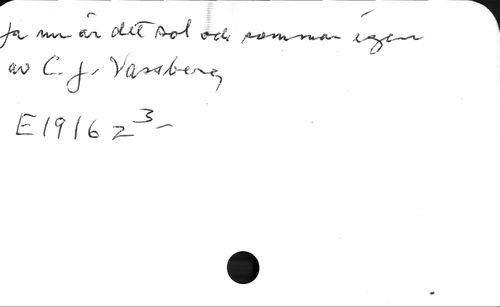 Ja nu är det sol och sommar igen
av C. J. Vassberg
E1916 z 3 –